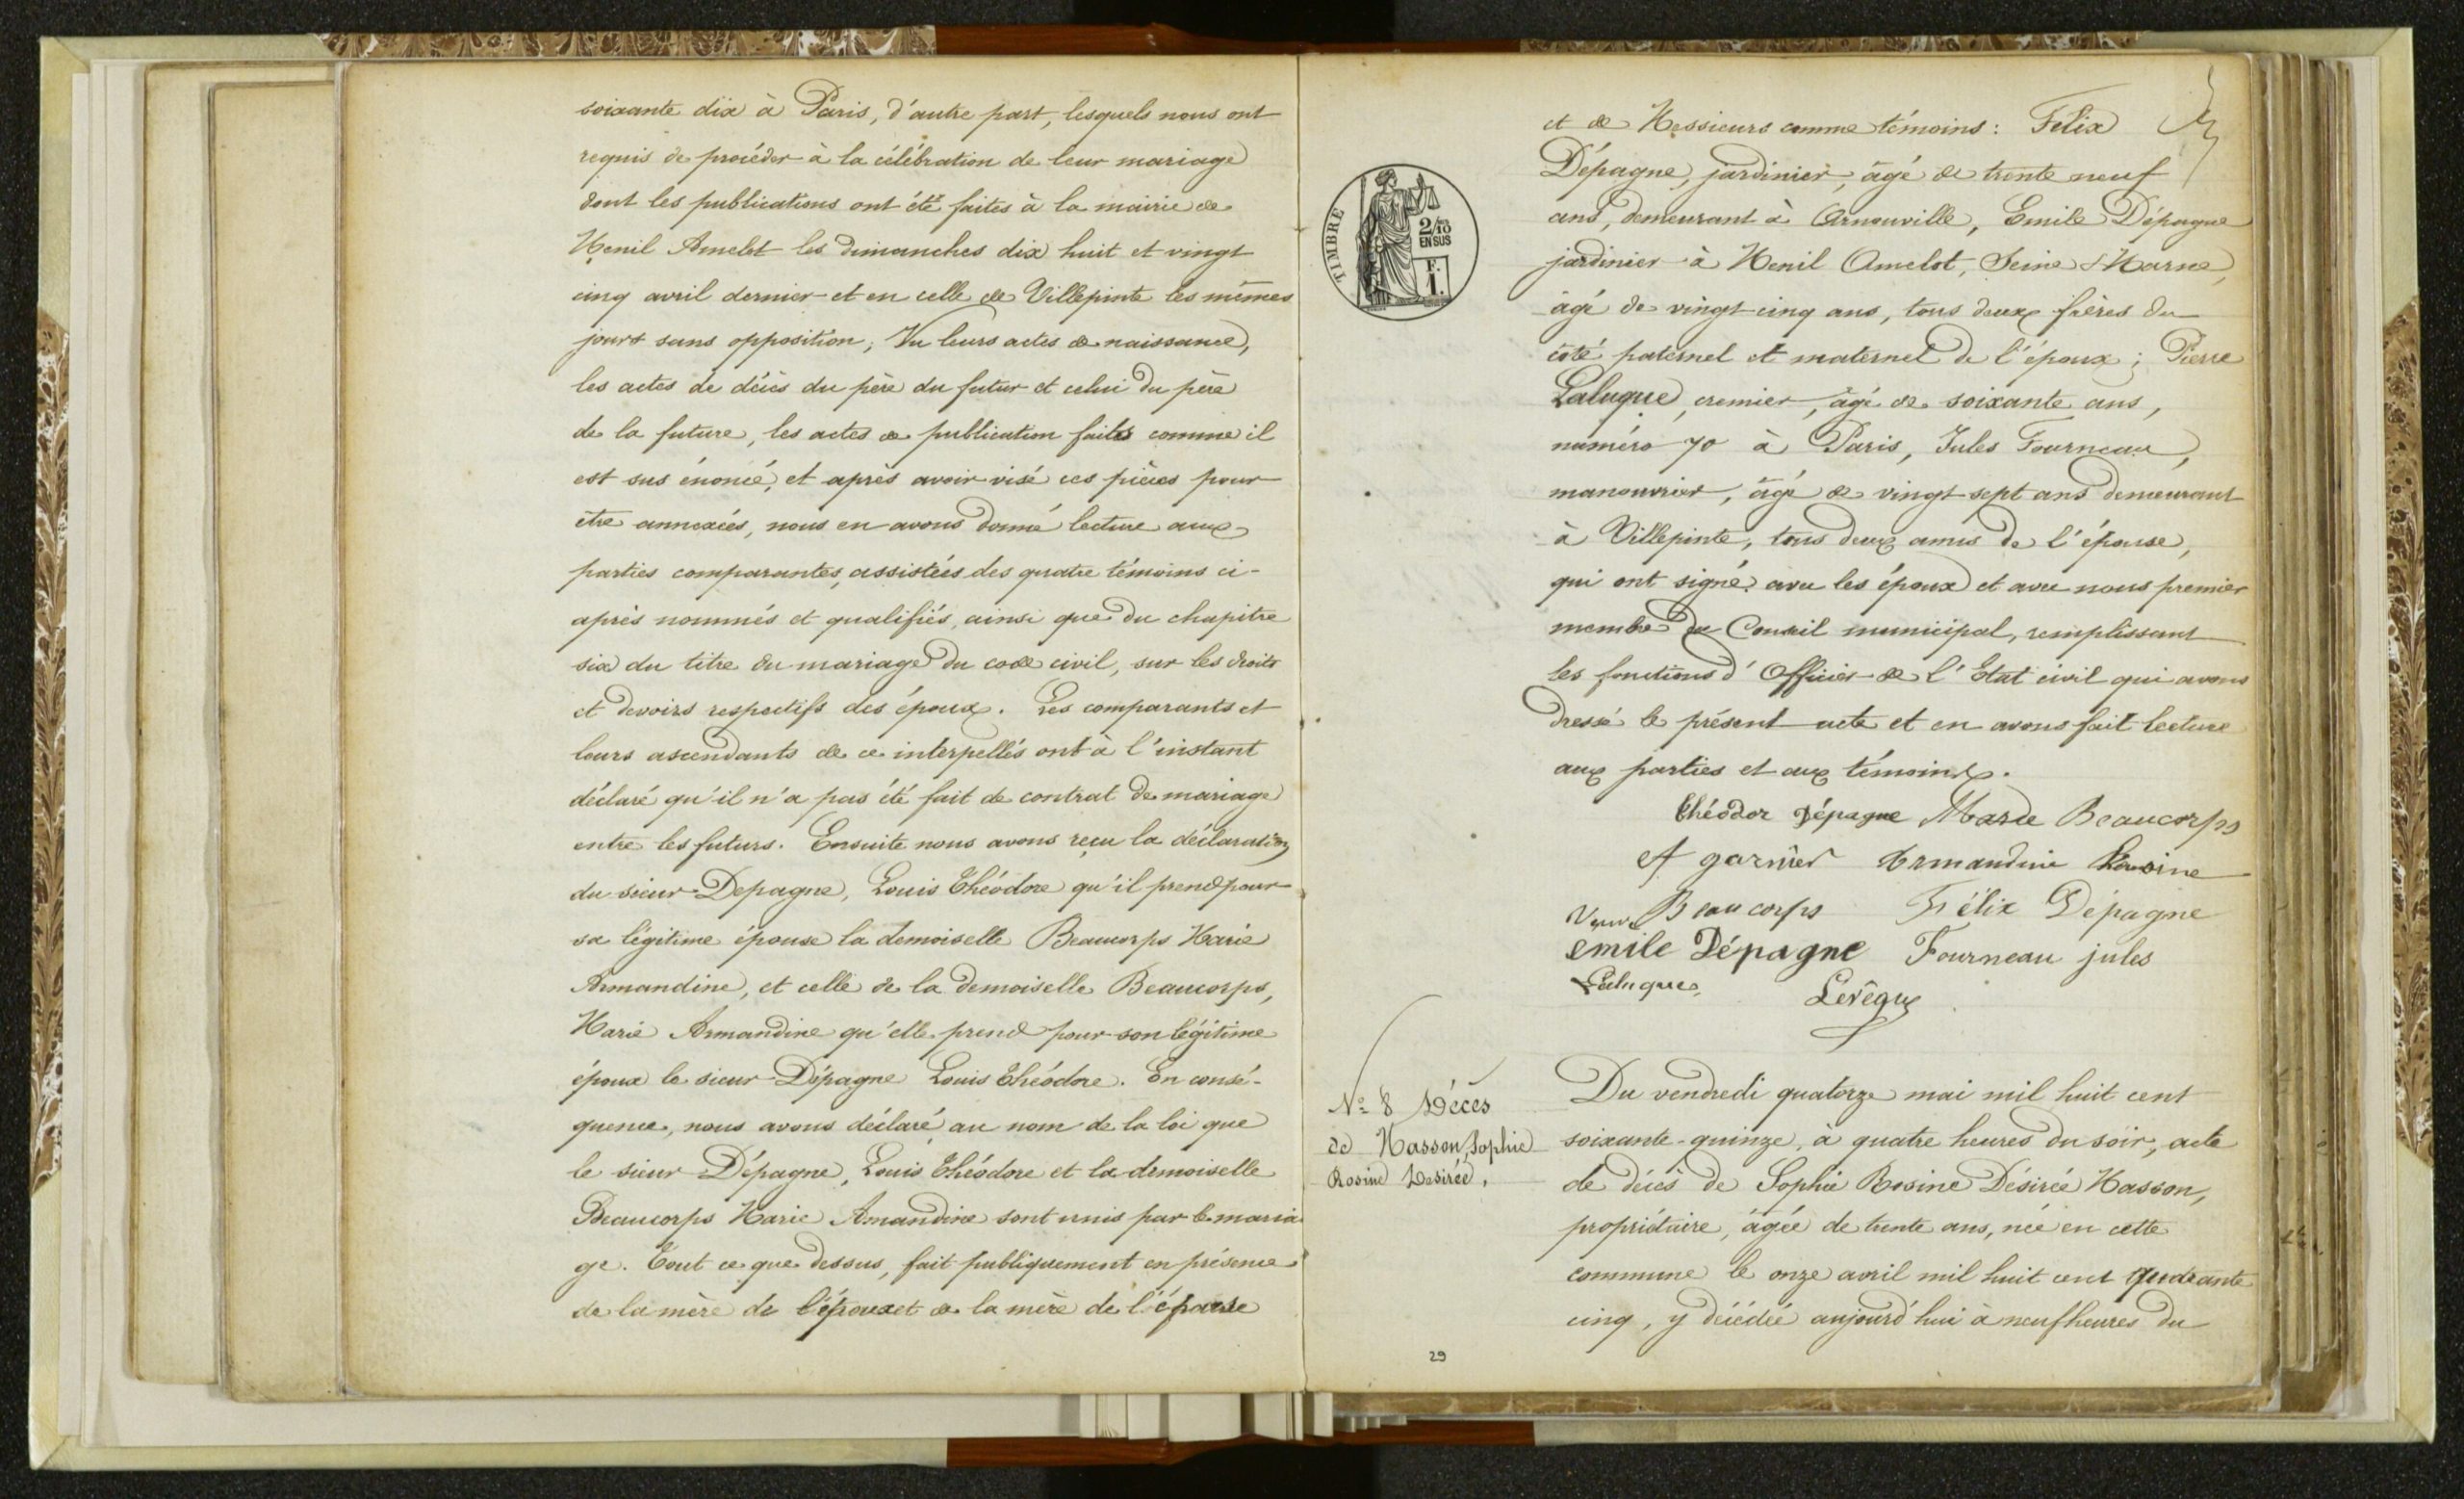 soixante dix à Paris, d'autre part, lesquels nous ont
requis de procéder à la célébration de leur mariage
dont les publications ont été faites à la mairie de
Menil Amelot les dimanches dix huit et vingt
cinq avril dernier et en celle de Villepinte les mêmes
jours sans opposition; Vu leurs actes de naissance,
les actes de décès du père du futur et celui du père
de la future, les actes de publication faites comme il
est sus énoncé, et après avoir visé ces pièces pour
être annexées, nous en avons donné lecture aux
parties comparantes, assistées des quatre témoins ci-
après nommés et qualifiés, ainsi que du chapitre
six du titre du mariage du code civil, sur les droits
et devoirs respectifs des époux. Les comparants et
leurs ascendants de ce interpellés ont à l'instant
déclaré qu'il n'a pas été fait de contrat de mariage
entre les futurs. Ensuite nous avons reçu la déclaration
du sieur Depagne, Louis Théodore qu'il prend pour
sa légitime épouse la demoiselle Beaucorps Marie
Armandine, et celle de la demoiselle Beaucorps,
Marie Armandine qu'elle prend pour son légitime
époux le sieur Dépagne Louis Théodore. En consé-
quence, nous avons déclaré au nom de la loi que
le sieur Dépagne, Louis Théodore et la demoiselle
Beaucorps Marie Amandine sont unis par le maria
ge. Tout ce que dessus, fait publiquement en présence
de la mère de l'époux et de la mère de l'épouse
TIMBRE
2/10
EN SUS
F.
1.
et de Messieurs comme témoins : Félix
Dépagne, jardinier, âgé de trente neuf
ans, demeurant à Arnouville, Emile Dépagne
jardinier à Menil Amelot, Seine & Marne,
âgé de vingt cinq ans, tous deux frères du
côté paternel et maternel de l'époux ; Pierre
Laluque, cremier, âgé de soixante ans,
numéro 70 à Paris, Jules Fourneau,
manouvrier, âgé de vingt sept ans demeurant
à Villepinte, tous deux amis de l'épouse,
qui ont signé avec les époux et avec nous premier
membre du Conseil municipal, remplissant
les fonctions d'Officier de l'Etat civil qui avons
dressé le présent acte et en avons fait lecture
aux parties et aux témoins.
théodor Dépagne Marie Beaucorps
garnier Armandine
Veuve Beaucorps Félix Dépagne
emile Dépagne Fourneau jules
Laluque Levêque
No 8 Décès
de Masson, Sophie
Rosine Desirée,
Du vendredi quatorze mai mil huit cent
soixante-quinze, à quatre heures du soir, acte
de décès de Sophie Rosine Désirée Masson,
propriétaire, âgée de trente ans, née en cette
commune le onze avril mil huit cent quarante
cinq, y décédée aujourd'hui à neuf heures du
29